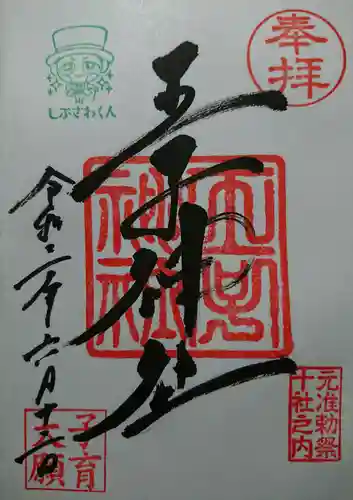 奉拝
しぶさわくん
王子神社
王子神社
令和二年六月十三日
元准勅祭
十社之内
子育
大願